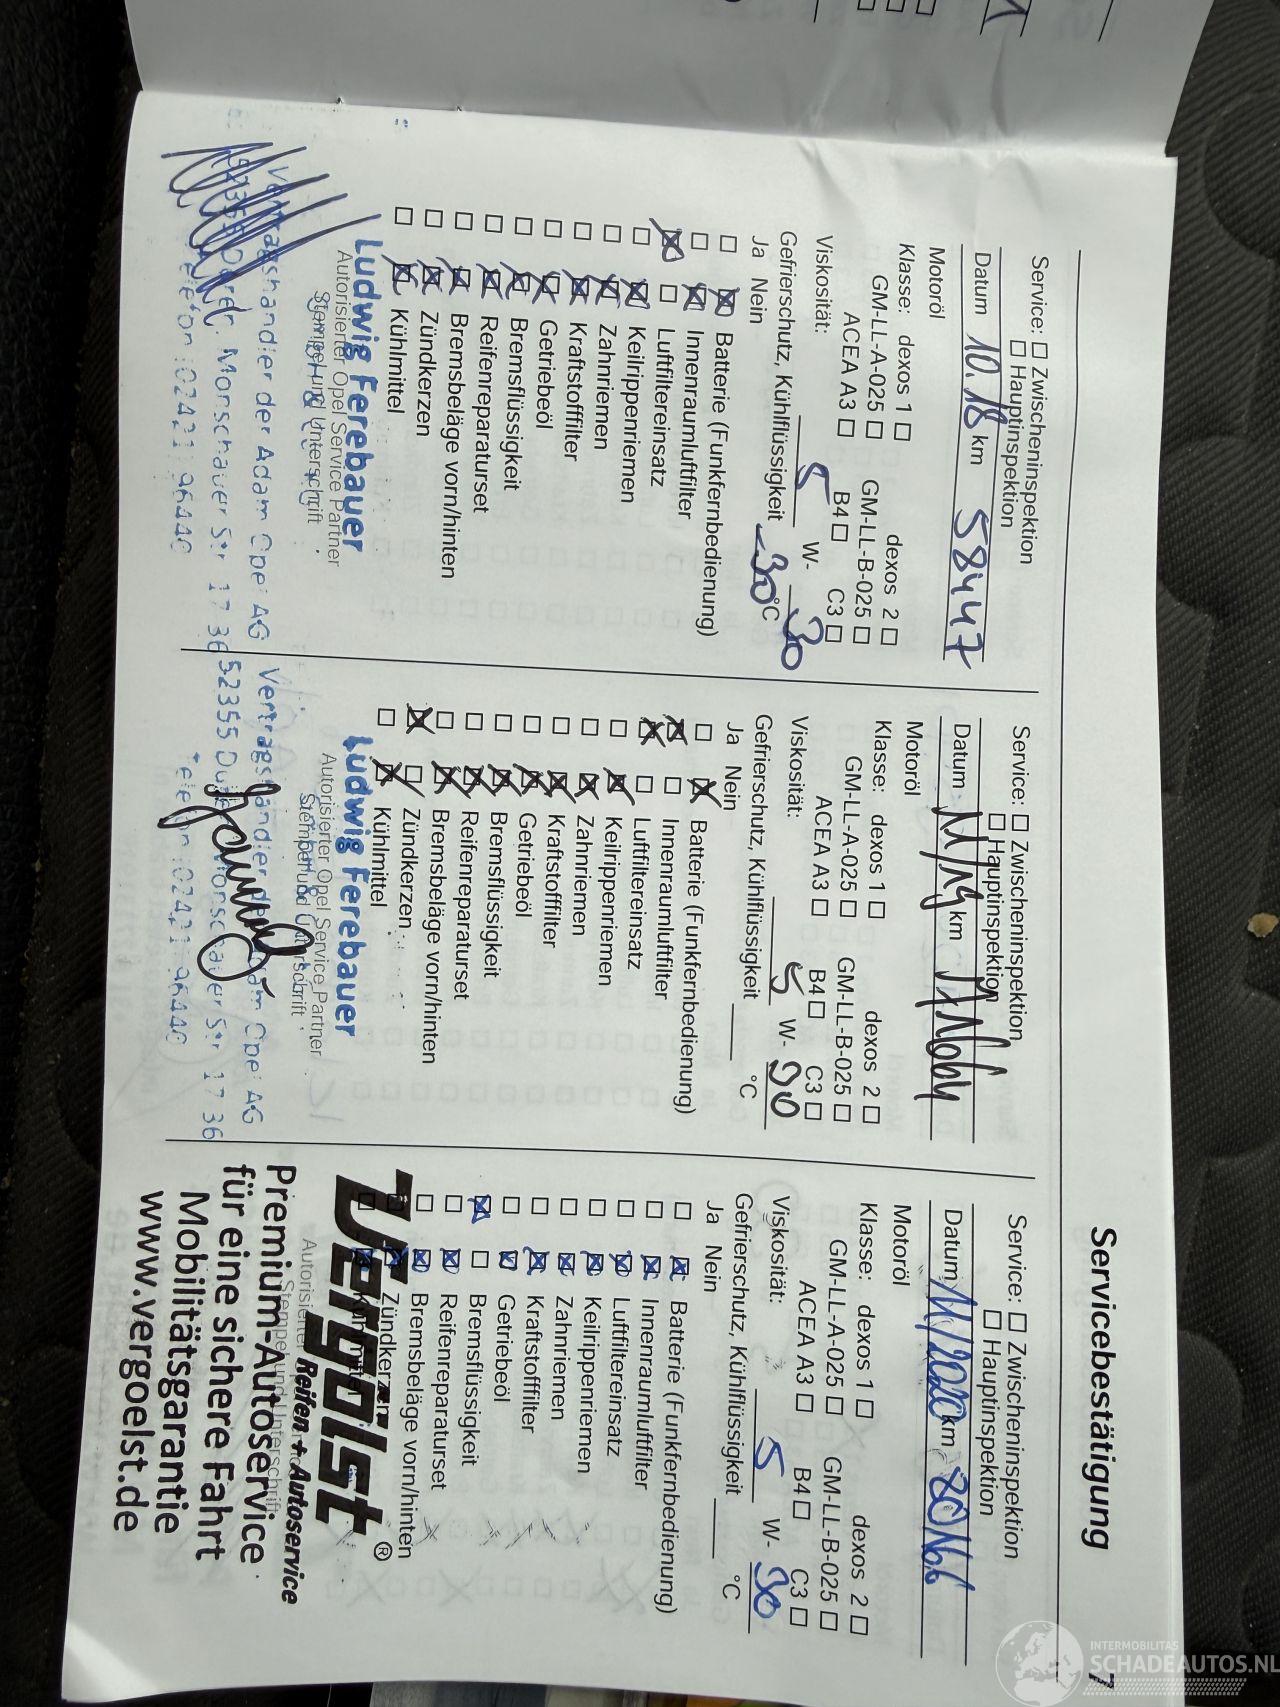 Servicebestätigung
Service: Zwischeninspektion
Hauptinspektion
Datum 10.18 km 58447
Motoröl
Klasse: dexos 1 dexos 2
GM-LL-A-025 GM-LL-B-025
ACEA A3 B4 C3
Viskosität: 5 W- 30
Gefrierschutz, Kühlflüssigkeit -30 °C
Ja Nein
Batterie (Funkfernbedienung)
Innenraumluftfilter
Luftfiltereinsatz
Keilrippenriemen
Zahnriemen
Kraftstofffilter
Getriebeöl
Bremsflüssigkeit
Reifenreparaturset
Bremsbeläge vorn/hinten
Zündkerzen
Kühlmittel
Ludwig Ferebauer
Autorisierter Opel Service Partner
Stempel und Unterschrift
Vertragshändler der Adam Opel AG
52355 Düren, Monschauer Str 17 36
Telefon: 02421 96440
Service: Zwischeninspektion
Hauptinspektion
Datum 11/19 km
Motoröl
Klasse: dexos 1 dexos 2
GM-LL-A-025 GM-LL-B-025
ACEA A3 B4 C3
Viskosität: 5 W- 30
Gefrierschutz, Kühlflüssigkeit °C
Ja Nein
Batterie (Funkfernbedienung)
Innenraumluftfilter
Luftfiltereinsatz
Keilrippenriemen
Zahnriemen
Kraftstofffilter
Getriebeöl
Bremsflüssigkeit
Reifenreparaturset
Bremsbeläge vorn/hinten
Zündkerzen
Kühlmittel
Ludwig Ferebauer
Autorisierter Opel Service Partner
Stempel und Unterschrift
Vertragshändler der Adam Opel AG
52355 Düren Monschauer Str 17 36
Telefon: 02421 96440
Service: Zwischeninspektion
Hauptinspektion
Datum 11/2020 km
Motoröl
Klasse: dexos 1 dexos 2
GM-LL-A-025 GM-LL-B-025
ACEA A3 B4 C3
Viskosität: 5 W- 30
Gefrierschutz, Kühlflüssigkeit °C
Ja Nein
Batterie (Funkfernbedienung)
Innenraumluftfilter
Luftfiltereinsatz
Keilrippenriemen
Zahnriemen
Kraftstofffilter
Getriebeöl
Bremsflüssigkeit
Reifenreparaturset
Bremsbeläge vorn/hinten
Zündkerzen
Kühlmittel
Vergölst®
Reifen + Autoservice
Autorisierter
Stempel und Unterschrift
Premium-Autoservice
für eine sichere Fahrt
Mobilitätsgarantie
www.vergoelst.de
7
INTERMOBILITAS
SCHADEAUTOS.NL